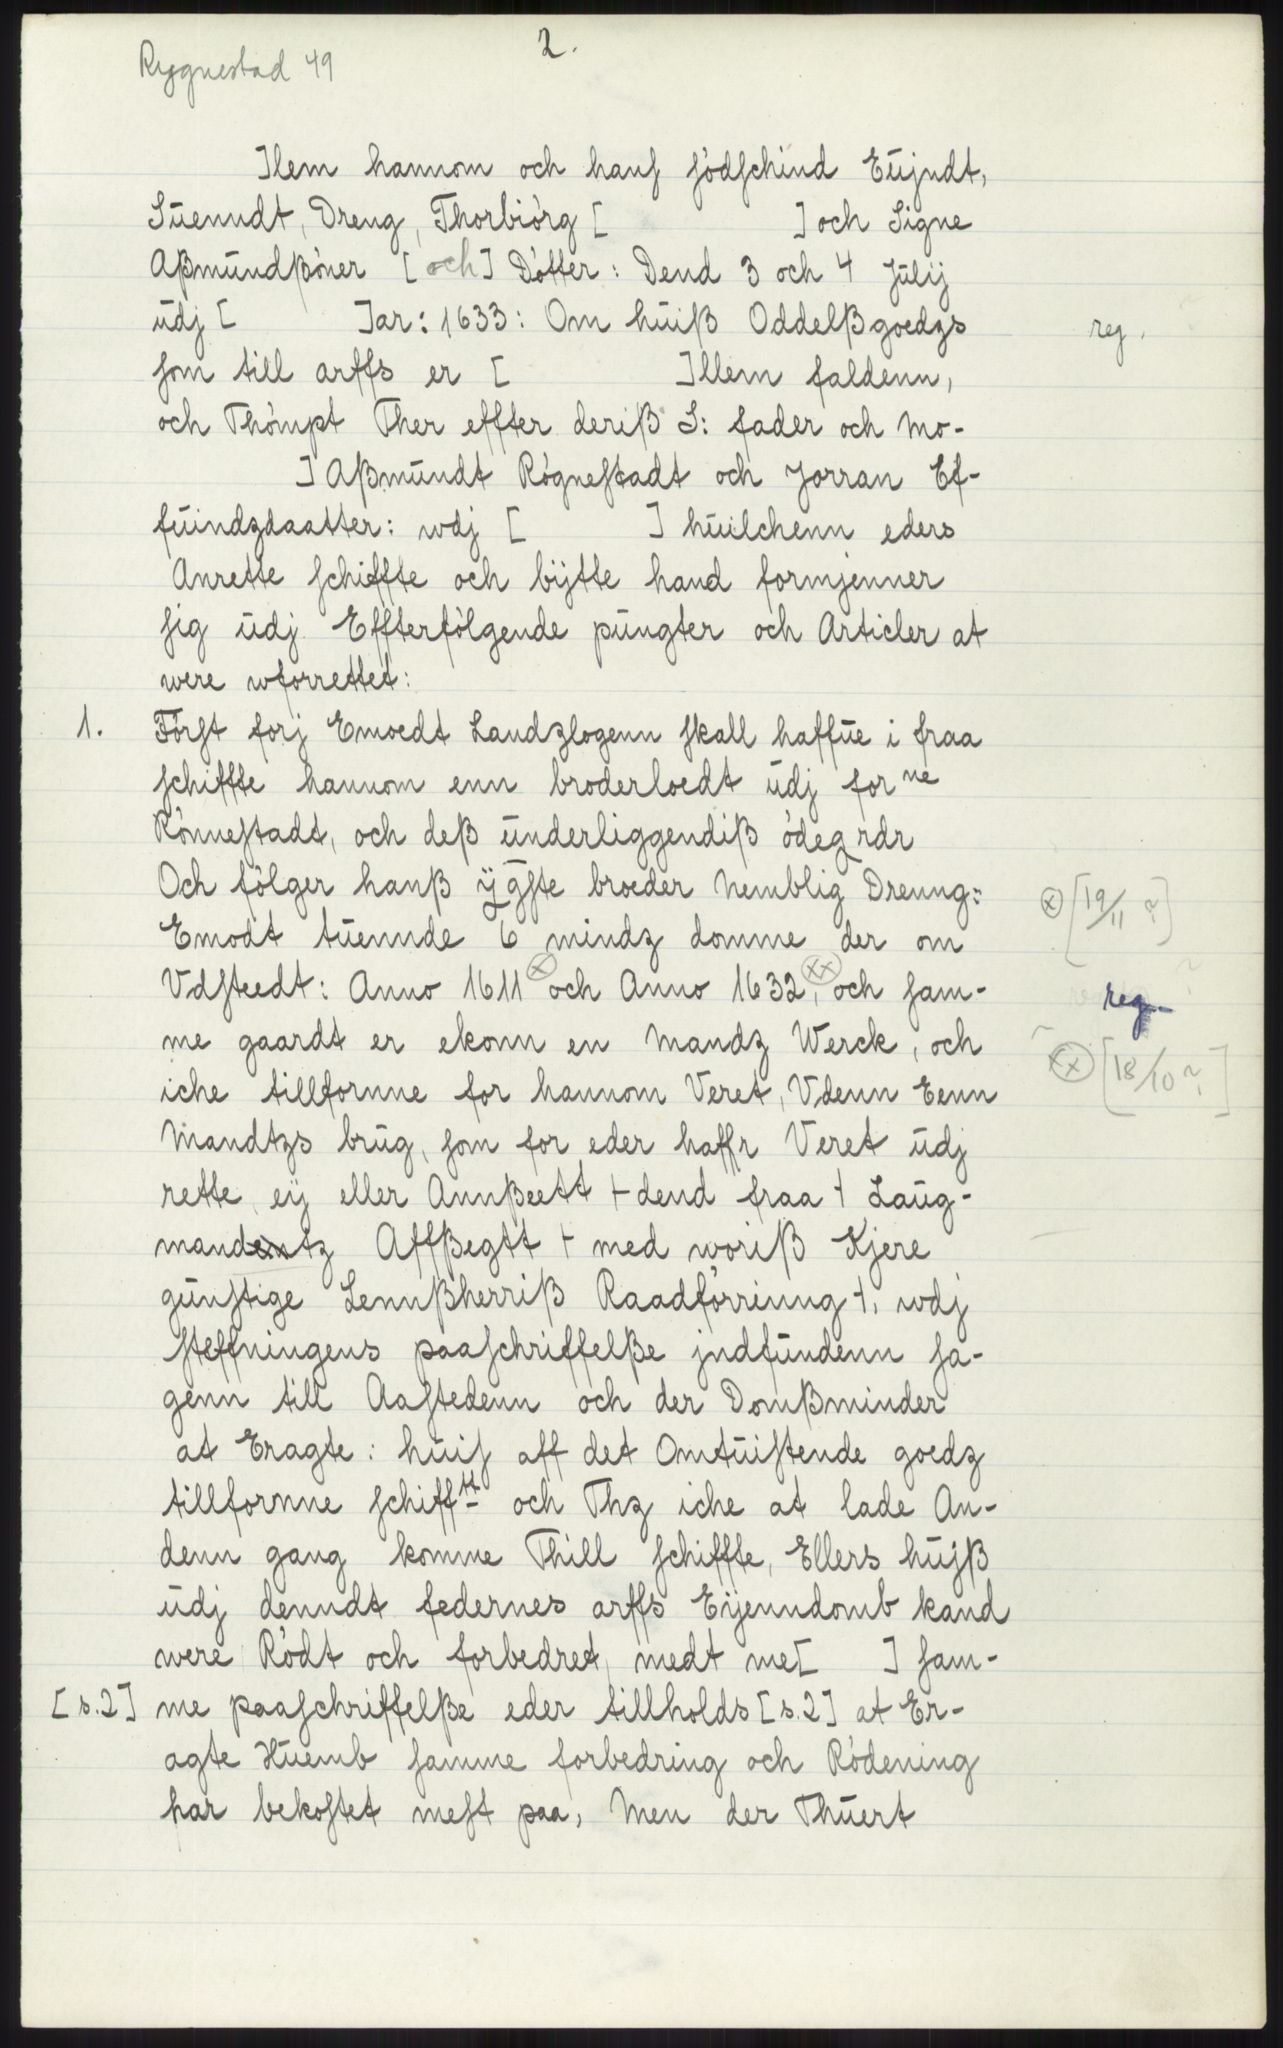 Rygnestad 49
2.
]llem hannom och hanſ ſødſchind Eüjndt,
Süenndt, Dreng, Thorbiørg [ ] och Signe
Aßmündßøner [och] Døtter: Dend 3 och 4 Jülij
üdj [ ]ar: 1633: Om hüiß Oddelßgoedzs
reg.
ſom till arffs er [ ]llem faldenn,
och Thømpt Ther effter deriß S: fader och Mo-
] Aßmündt Røgneſtadt och Jorran Ef-
füindzdaatter: wdj [ ] hüilchenn eders
Anrette ſchiffte och bÿtte hand formjenner
ſig üdj Effterfølgende püngter och Articler at
were wforrettet:
1. Førſt forj Emoedt Landzlogenn ſkall haffüe i fraa
ſchiffte hannom enn broderloedt üdj for ne
Rønneſtadt, och deß ünderliggendiß ødegrdr
Och følger hanß ÿgſte broeder Nemblig Drenng:
⊗ [19/11 ?]
Emodt tüennde 6 mindz domme der om
Vdſteedt: Anno 1611 ⊗ och Anno 1632, (xx) och ſam-
reg.
me gaardt er ekonn en Mandz Werck, och
(xx) [18/10 ?]
iche tillfornne for hannom Veret, Vdenn Eenn
Mandtzs brüg, ſom for eder haffr Veret üdj
rette, eÿ eller Annßeett + dend fraa + Laüg-
mandentz Affßegtt + med woriß Kjere
günſtige Lennßherriß Raadførrinng +, wdj
ſteffningens paaſchriffelße jndfündenn ſa-
genn till Aaſtedenn och der Domßminder
at Eragte: hüiſ aff det Omtüiſtende goedz
tillfornne ſchiff tt och Thz iche at lade An-
denn gang komme Thill ſchiffte, Ellers hüjß
üdj denndt federnes arffs Eÿenndomb kand
were Rødt och forbedret, medt me[ ] ſam-
[s.2] me paaſchriffelße eder tillholds [s.2] at Er-
agte Hüemb ſamme forbedring och Rødening
har bekoſtet meſt paa, Men der Thüert